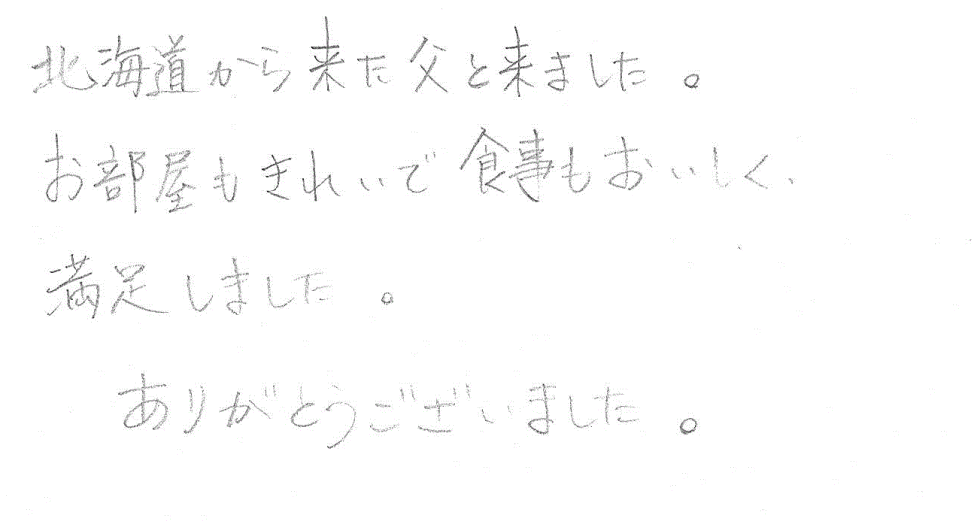 北海道から来た父と来ました。
お部屋もきれいで食事もおいしく、
満足しました。
ありがとうございました。